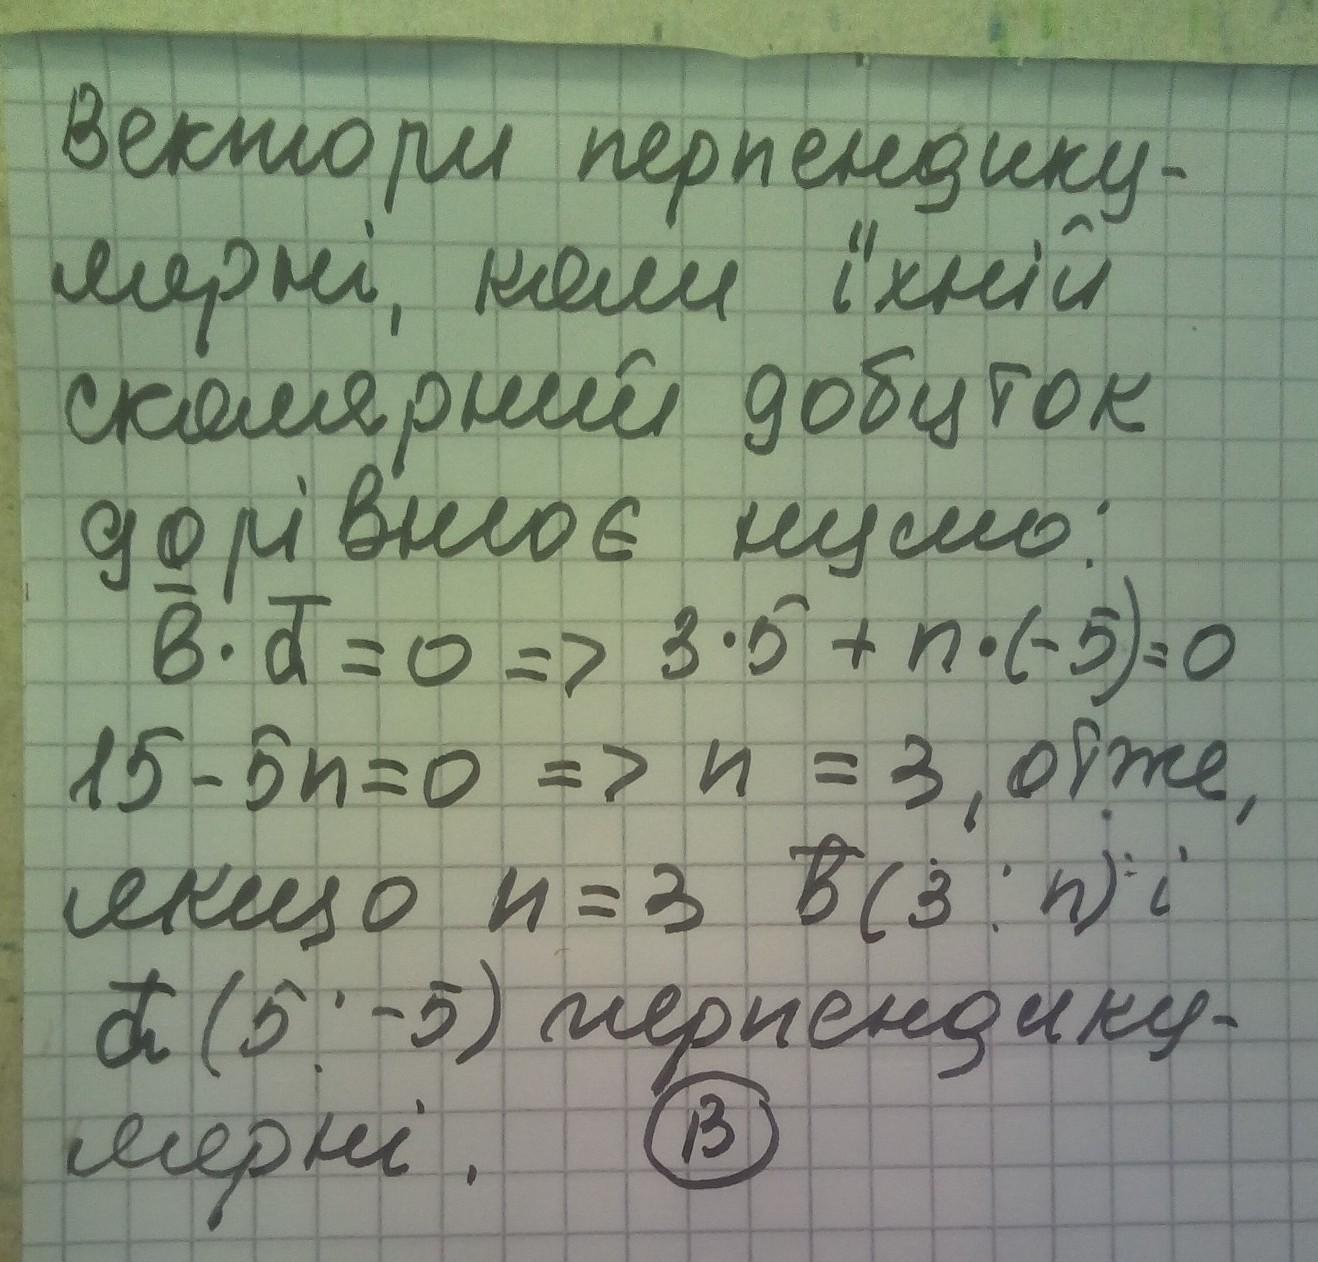 Вектори перпендику-
лярні, коли їхній
скалярний добуток
дорівнює нулю:
b̅ · a̅ = 0 => 3·5 + n·(-5)=0
15-5n=0 => n = 3, отже,
якщо n=3 b̅(3; n) і
a̅ (5; -5) перпендику-
лярні. В